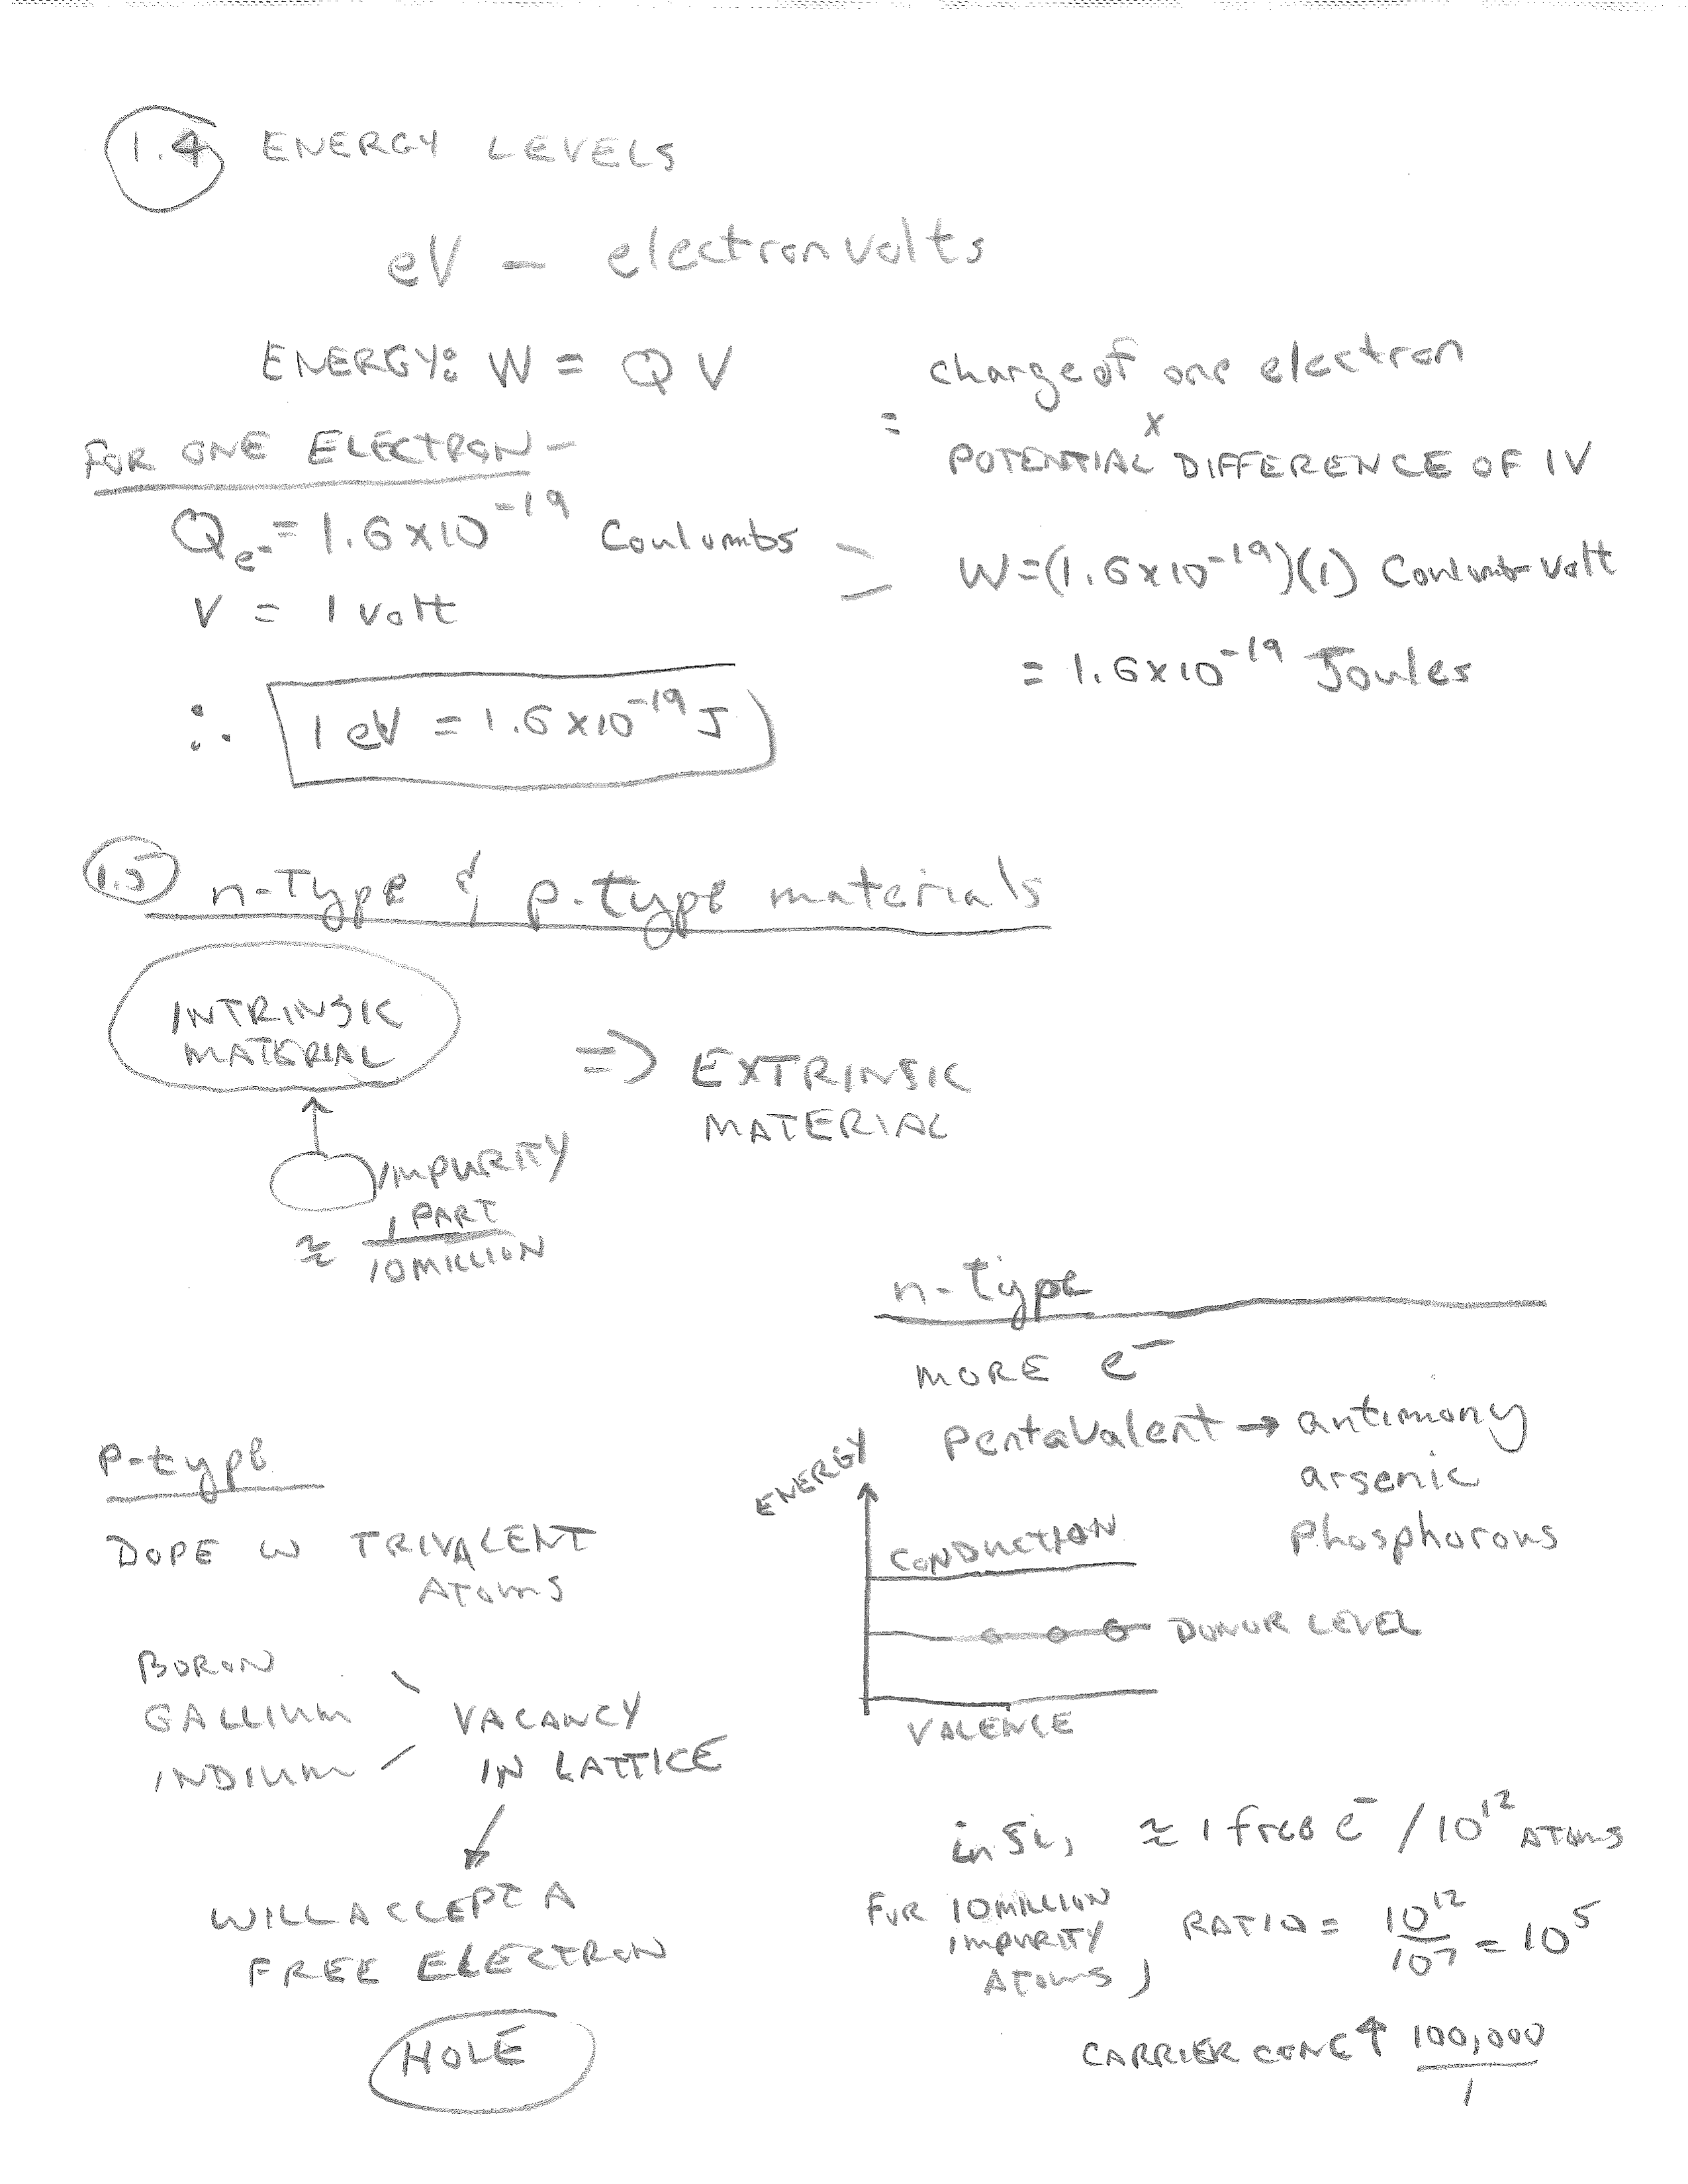 1.4 ENERGY LEVELS
eV - electron volts
ENERGY: W = Q V
= charge of one electron
x
POTENTIAL DIFFERENCE OF 1V
FOR ONE ELECTRON -
Qe- = 1.6 x 10^-19 Coulombs
V = 1 volt
W = (1.6 x 10^-19)(1) Coulomb-volt
= 1.6 x 10^-19 Joules
∴ 1 eV = 1.6 x 10^-19 J
1.5 n-Type & p-type materials
INTRINSIC
MATERIAL
=> EXTRINSIC
MATERIAL
IMPURITY
≈ 1 PART
10 MILLION
n-type
MORE e-
Pentavalent → antimony
arsenic
Phosphorous
ENERGY
CONDUCTION
DONOR LEVEL
VALENCE
in Si, ≈ 1 free e- / 10^12 ATOMS
FOR 10 MILLION
IMPURITY
ATOMS,
RATIO = 10^12 / 10^7 = 10^5
CARRIER CONC ↑ 100,000
1
P-type
DOPE W TRIVALENT
ATOMS
BORON
GALLIUM
INDIUM
VACANCY
IN LATTICE
WILL ACCEPT A
FREE ELECTRON
HOLE